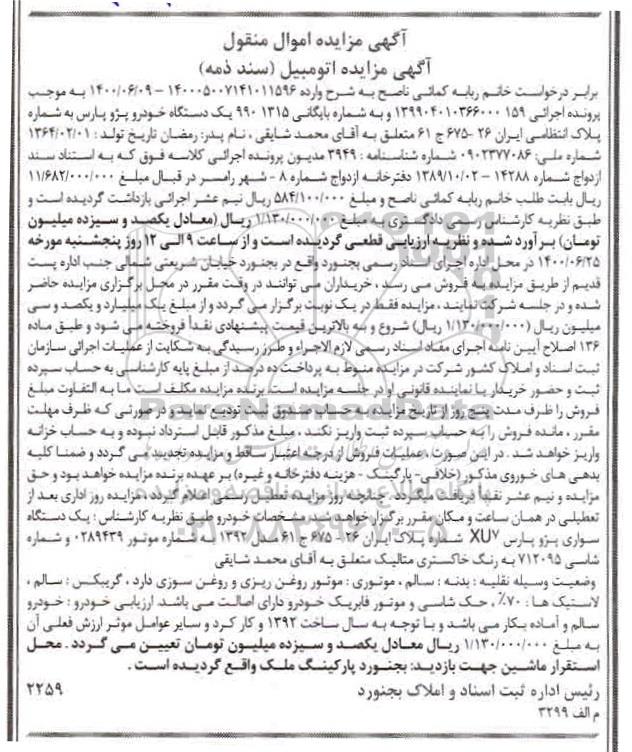 آگهی مزایده اموال منقول
آگهی مزایده اتومبیل (سند ذمه)
برابر درخواست خانم ربابه کمائی ناصح به شرح وارده ۱۴۰۰۰۵۰۰۷۱۴۱۰۱۱۵۹۶ - ۱۴۰۰/۰۶/۰۹ به موجب
پرونده اجرائی ۱۵۹ ۱۳۹۹۰۴۰۱۰۳۶۶۰۰۰ و به شماره بایگانی ۱۳۱۵ ۹۹۰ یک دستگاه خودرو پژو پارس به شماره
پلاک انتظامی ایران ۲۶ -۶۷۵ ج ۶۱ متعلق به آقای محمد شایقی ، نام پدر: رمضان تاریخ تولد : ۱۳۶۴/۰۲/۰۱
شماره ملی: ۰۹۰۲۳۷۷۰۸۶ شماره شناسنامه : ۳۹۴۹ مدیون پرونده اجرائی کلاسه فوق که به استناد سند
ازدواج شماره ۱۴۲۸۸ - ۱۳۸۹/۱۰/۰۲ دفترخانه ازدواج شماره ۸ - شهر رامسر در قبال مبلغ ۱۱/۶۸۲/۰۰۰/۰۰۰
ریال بابت طلب خانم ربابه کمائی ناصح و مبلغ ۵۸۴/۱۰۰/۰۰۰ ریال نیم عشر اجرائی بازداشت گردیده است و
طبق نظریه کارشناس رسمی دادگستری به مبلغ ۱/۱۳۰/۰۰۰/۰۰۰ ریال (معادل یکصد و سیزده میلیون
تومان) بر آورد شده و نظریه ارزیابی قطعی گردیده است و از ساعت ۹ الی ۱۲ روز پنجشنبه مورخه
۱۴۰۰/۰۶/۲۵ در محل اداره اجرای اسناد رسمی بجنورد واقع در بجنورد خیابان شریعتی شمالی جنب اداره پست
قدیم از طریق مزایده به فروش می رسد ، خریداران می توانند در وقت مقرر در محل برگزاری مزایده حاضر
شده و در جلسه شرکت نمایند ، مزایده فقط در یک نوبت برگزار می گردد و از مبلغ یک میلیارد و یکصد و سی
میلیون ریال (۱/۱۳۰/۰۰۰/۰۰۰ ریال) شروع و به بالاترین قیمت پیشنهادی نقداً فروخته می شود و طبق ماده
۱۳۶ اصلاح آیین نامه اجرای مفاد اسناد رسمی لازم الاجراء و طرز رسیدگی به شکایت از عملیات اجرائی سازمان
ثبت اسناد و املاک کشور شرکت در مزایده منوط به پرداخت ده درصد از مبلغ پایه کارشناسی به حساب سپرده
ثبت و حضور خریدار یا نماینده قانونی او در جلسه مزایده است. برنده مزایده مکلف است ما به التفاوت مبلغ
فروش را ظرف مدت پنج روز از تاریخ مزایده به حساب صندوق ثبت تودیع نماید و در صورتی که ظرف مهلت
مقرر ، مانده فروش را به حساب سپرده ثبت واریز نکند ، مبلغ مذکور قابل استرداد نبوده و به حساب خزانه
واریز خواهد شد . در این صورت ، عملیات فروش از درجه اعتبار ساقط و مزایده تجدید می گردد و ضمنا کلیه
بدهی های خوروی مذکور (خلافی- پارکینگ - هزینه دفترخانه و غیره) بر عهده برنده مزایده خواهد بود و حق
مزایده و نیم عشر نقداً دریافت میگردد. چنانچه روز مزایده تعطیل رسمی اعلام گردد ، مزایده روز اداری بعد از
تعطیلی در همان ساعت و مکان مقرر برگزار خواهد شد. مشخصات خودرو طبق نظریه کارشناس : یک دستگاه
سواری پژو پارس XU۷ شماره پلاک ایران ۲۶ - ۶۷۵ ج ۶۱ مدل ۱۳۹۲ به شماره موتور ۰۲۸۹۴۳۹ و شماره
شاسی ۷۱۲۰۹۵ به رنگ خاکستری متالیک متعلق به آقای محمد شایقی
وضعیت وسیله نقلیه : بدنه : سالم ، موتوری : موتور روغن ریزی و روغن سوزی دارد ، گریبکس : سالم ،
لاستیک ها : ۷۰٪ ، حک شاسی و موتور فابریک خودرو دارای اصالت می باشد. ارزیابی خودرو : خودرو
سالم و آماده بکار می باشد و با توجه به سال ساخت ۱۳۹۲ و کار کرد و سایر عوامل موثر ارزش فعلی آن
به مبلغ ۱/۱۳۰/۰۰۰/۰۰۰ ریال معادل یکصد و سیزده میلیون تومان تعیین می گردد . محل
استقرار ماشین جهت بازدید: بجنورد پارکینگ ملک واقع گردیده است .
رئیس اداره ثبت اسناد و املاک بجنورد ۲۲۵۹
م الف ۳۲۹۹